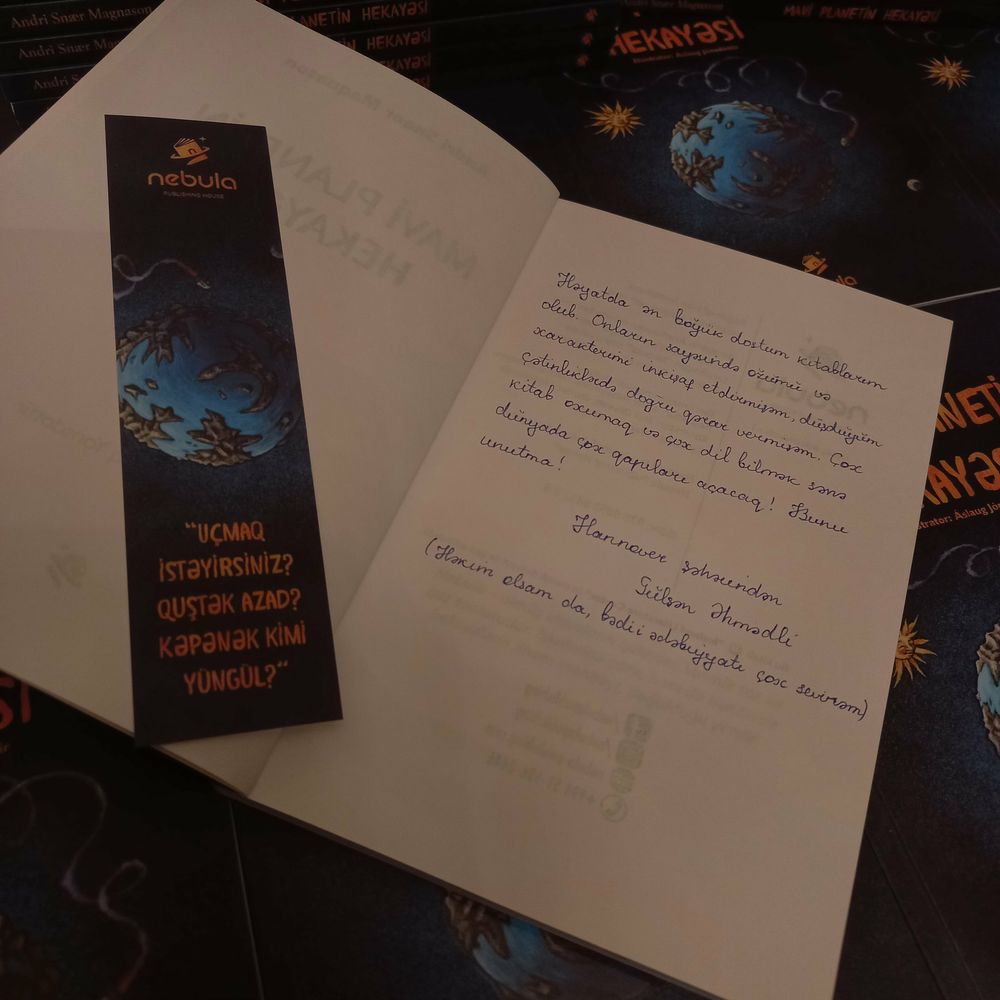 Andri Snær Magnason
PLANETİN HEKAYƏSİ
Andri Snær Mag
HEKAYƏSİ
Andri Sn
MAVİ PLANETİN HEKAYƏSİ
HEKAYƏSİ
nebula
nebula
PUBLISHING HOUSE
"UÇMAQ
İSTƏYİRSİNİZ?
QUŞTƏK AZAD?
KƏPƏNƏK KİMİ
YÜNGÜL?"
Həyatda ən böyük dostum kitablarım
olub. Onların sayəsində özümü və
xarakterimi inkişaf etdirmişəm, düşdüyüm
çətinliklərdə doğru qərar vermişəm. Çox
kitab oxumaq və çox dil bilmək sənə
dünyada çox qapıları açacaq! Bunu
unutma!
Hannover şəhərindən
Gülşən Əhmədli
(Həkim olsam da, bədii ədəbiyyatı çox sevirəm)
MAVİ PLAN
HEKAY